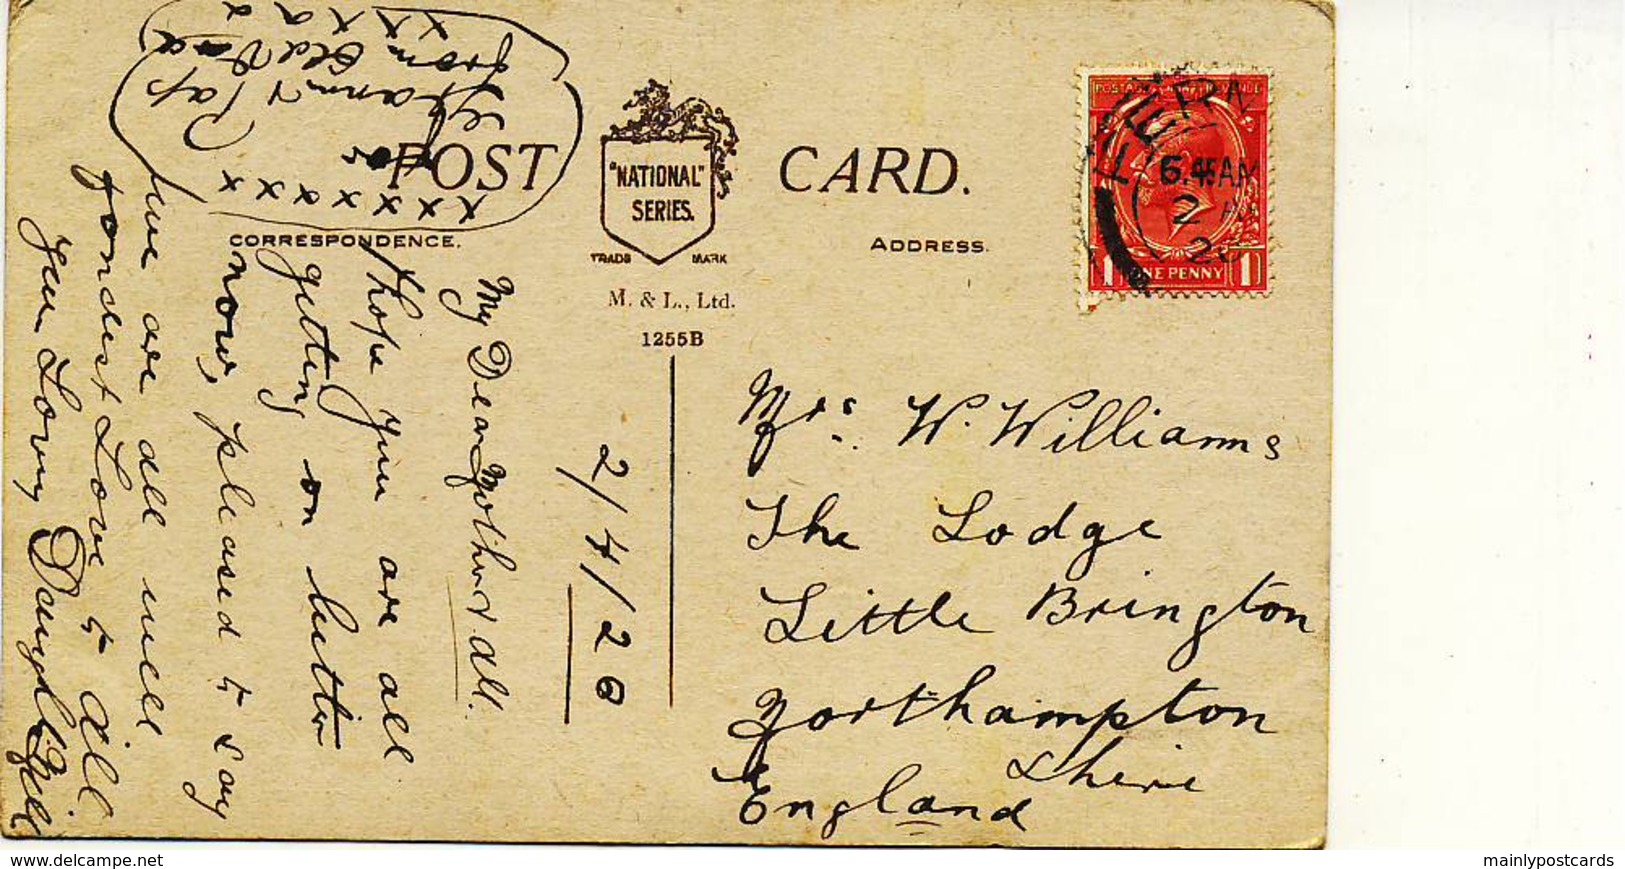 POST CARD.
"NATIONAL"
SERIES.
TRADE MARK
M. & L., Ltd.
1255B
CORRESPONDENCE.
ADDRESS.
POSTAGE REVENUE
6.45AM
2
20
1 ONE PENNY 1
2/4/20
My Dear Mother & all.
I hope you are all
getting on better
now, pleased to say
we are all well
fondest Love to all
your Loving Daughter Nell
x x x x x x x
for
Gran & Pap
from
x x x x
Mrs. W. Williams
The Lodge
Little Brington
Northampton
shire
England
www.delcampe.net
mainlypostcards